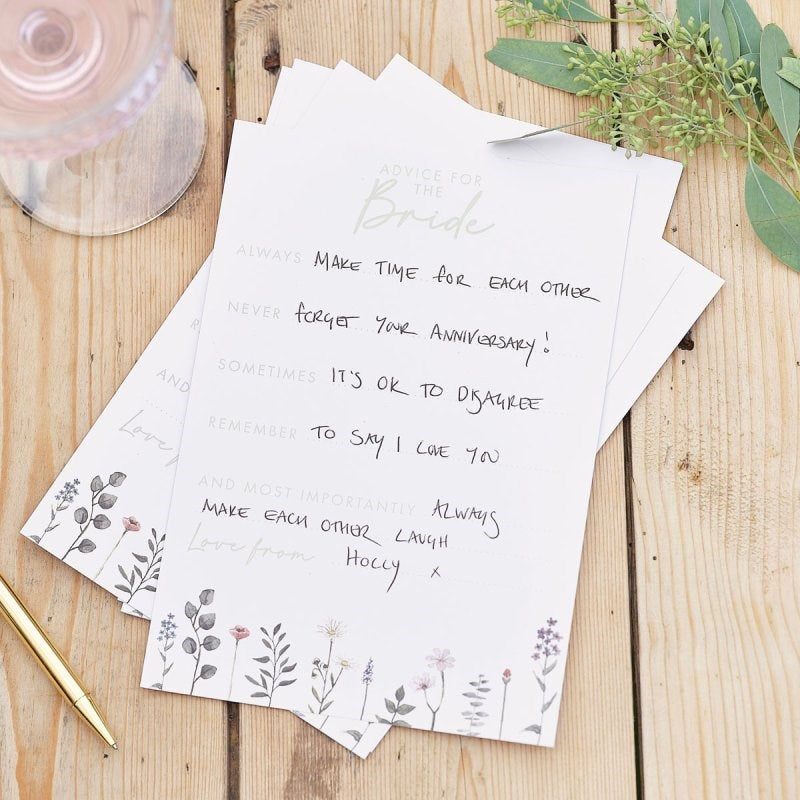 ADVICE FOR
THE
Bride
ALWAYS MAKE TIME FOR EACH OTHER
NEVER FORGET YOUR ANNIVERSARY!
SOMETIMES IT'S OK TO DISAGREE
REMEMBER TO SAY I LOVE YOU
AND MOST IMPORTANTLY ALWAYS
MAKE EACH OTHER LAUGH
Love from HOLLY x
R
AND
Love f